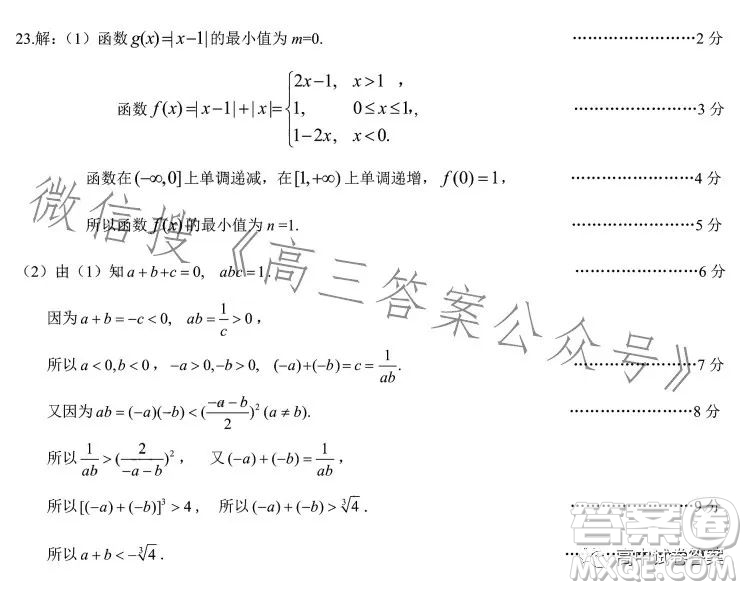 23.解：（1）函数 g(x)=|x−1| 的最小值为 m=0. ························2 分
函数 f(x)=|x−1|+|x|={2x−1, x>1 ，
1, 0≤x≤1，, ························3 分
1−2x, x<0.
函数在 (−∞,0] 上单调递减，在 [1,+∞) 上单调递增， f(0)=1， ························4 分
所以函数 f(x) 的最小值为 n =1. ························5 分
（2）由（1）知 a+b+c=0, abc=1. ························6 分
因为 a+b=−c<0, ab=1/c>0，
所以 a<0,b<0， −a>0,−b>0, (−a)+(−b)=c=1/ab. ························7 分
又因为 ab=(−a)(−b)<((−a−b)/2)² (a≠b). ························8 分
所以 1/ab>(2/(−a−b))²， 又 (−a)+(−b)=1/ab，
所以 [(−a)+(−b)]³>4， 所以 (−a)+(−b)>∛4． ························9 分
所以 a+b<−∛4．
微信搜《高三答案公众号》
答案卷
高中试卷答案
MXQE.COM